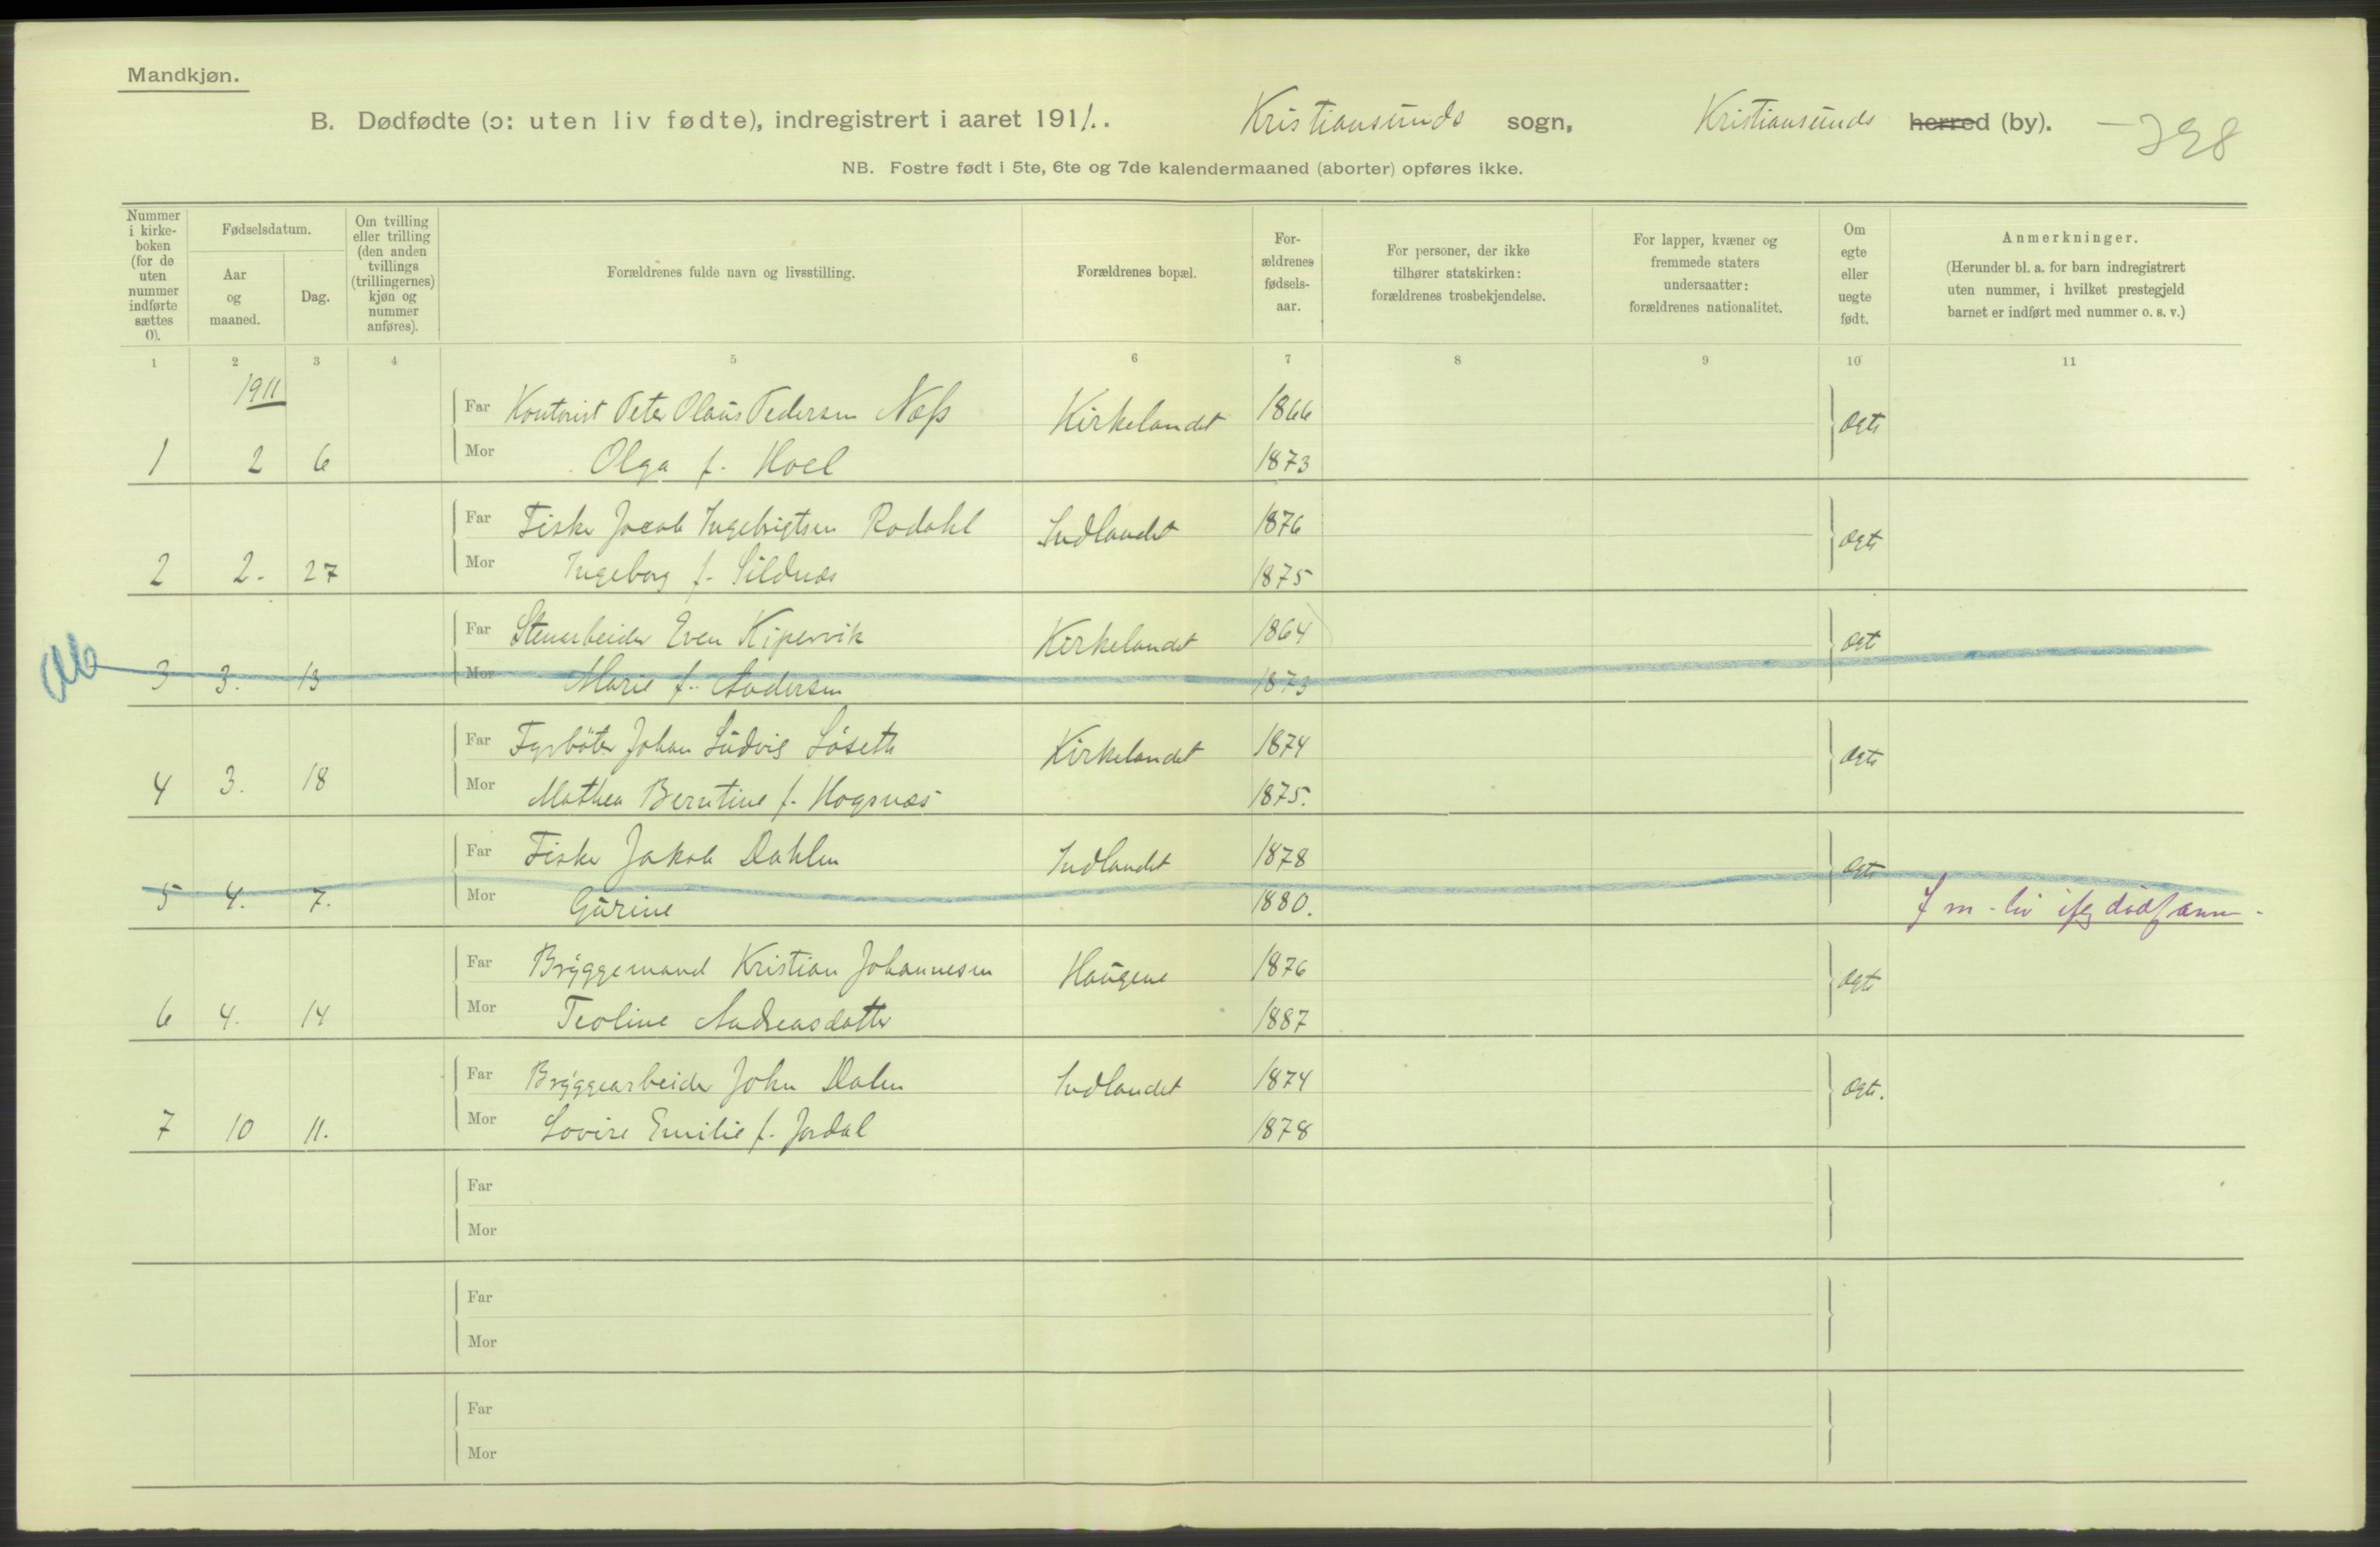 Mandkjøn.
B. Dødfødte (ɔ: uten liv fødte), indregistrert i aaret 1911. Kristiansunds sogn, Kristiansunds herred (by). – 398
NB. Fostre født i 5te, 6te og 7de kalendermaaned (aborter) opføres ikke.
Nummer i kirke-boken (for de uten nummer indførte sættes 0).
Fødselsdatum.
Aar og maaned.
Dag.
Om tvilling eller trilling (den anden tvillings (trillingernes) kjøn og nummer anføres).
Forældrenes fulde navn og livsstilling.
Forældrenes bopæl.
For-ældrenes fødsels-aar.
For personer, der ikke tilhører statskirken: forældrenes trosbekjendelse.
For lapper, kvæner og fremmede staters undersaatter: forældrenes nationalitet.
Om egte eller uegte født.
Anmerkninger.
(Herunder bl. a. for barn indregistrert uten nummer, i hvilket prestegjeld barnet er indført med nummer o. s. v.)
1 2 3 4 5 6 7 8 9 10 11
1911
Far Kontorist Peter Olaus Pedersen Næss Kirkelandet 1866 ægte
1 2 6 Mor Olga f. Hoel 1873
Far Fisker Jacob Ingebrigtsen Rodahl Indlandet 1876 ægte
2 2. 27 Mor Ingeborg f. Sildnæs 1875
Far Stenarbeider Even Kipervik Kirkelandet 1864 ægt
3 3. 13 Mor Marie f. Andersen 1873
Far Fyrbøter Johan Ludvig Løseth Kirkelandet 1874 ægte
4 3. 18 Mor Mathea Berntine f. Hognæs 1875.
Far Fisker Jakob Dahlen Indlandet 1878 ægte
5 4. 7. Mor Gurine 1880. I m - liv ifg dødfanm -
Far Bryggemand Kristian Johannesen Haugene 1876 ægte
6 4. 14 Mor Teoline Andreasdatter 1887
Far Bryggearbeider John Dalen Indlandet 1874 ægte.
7 10 11. Mor Lovise Emilie f. Jordal 1878
Far
Mor
Far
Mor
Far
Mor